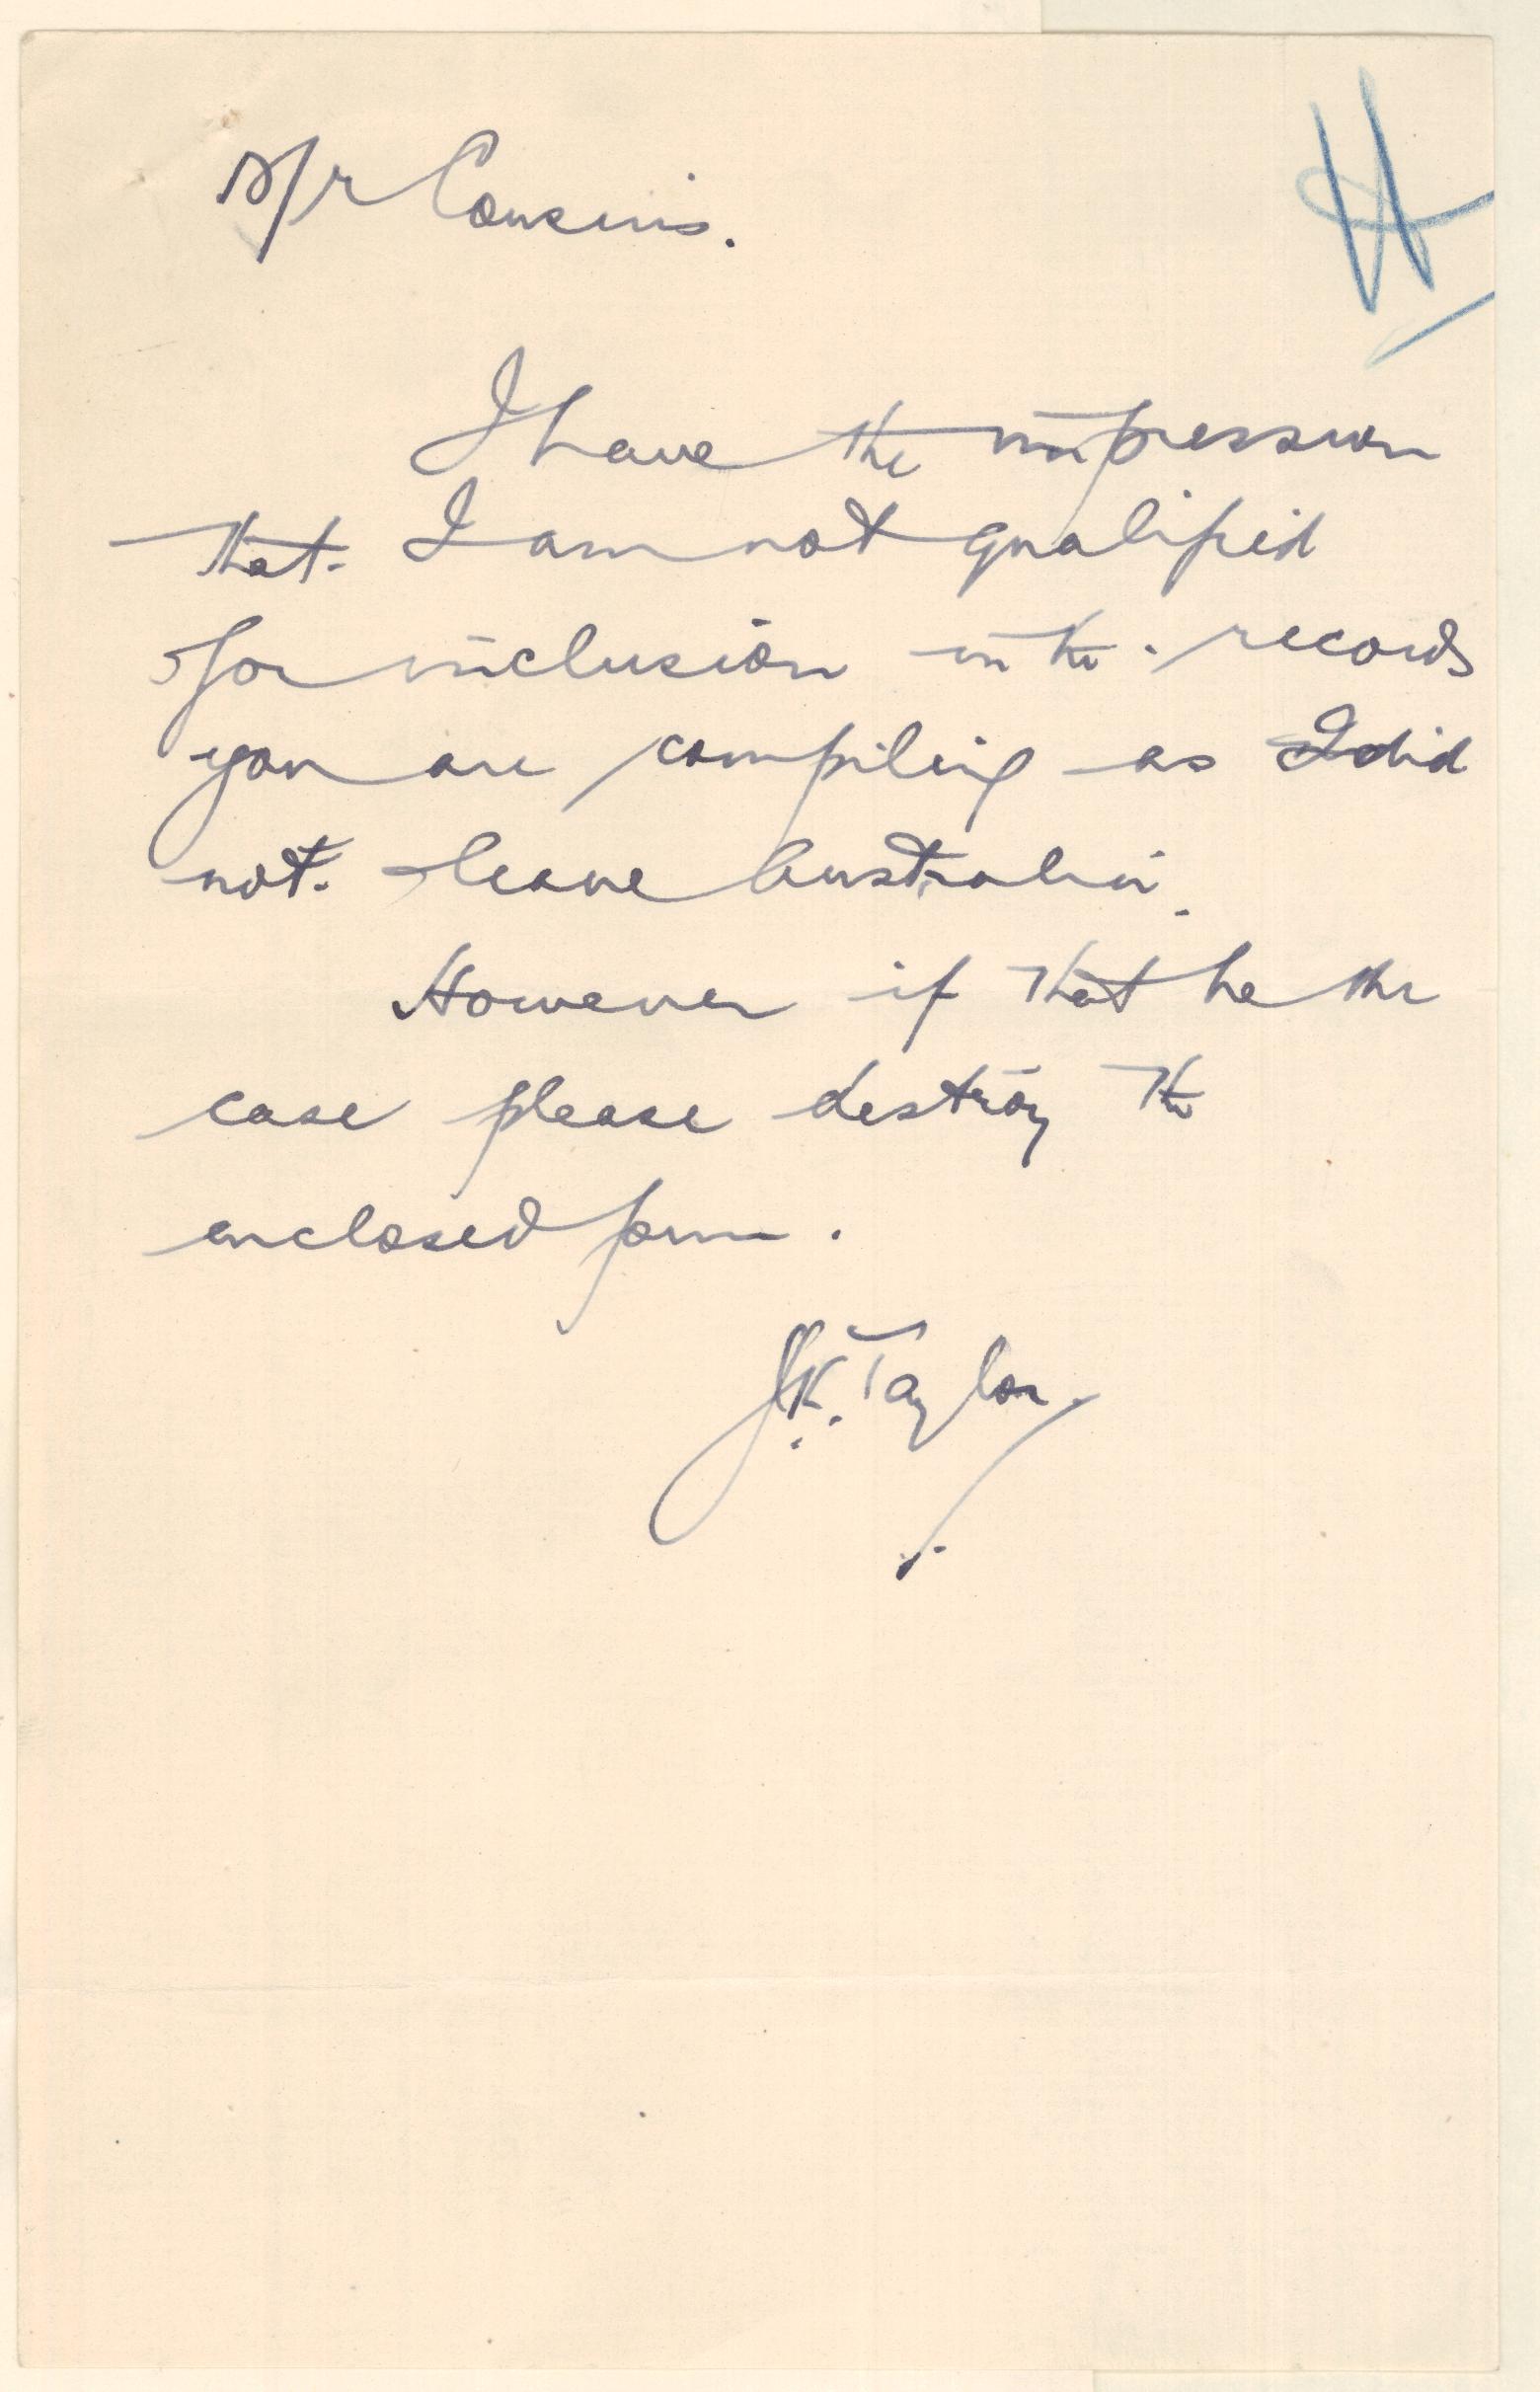 Mr Cousins.
I have the impression
that I am not qualified
for inclusion in the records
you are compiling as I did
not leave Australia.
However if that be the
case please destroy the
enclosed form.
J.K. Taylor.